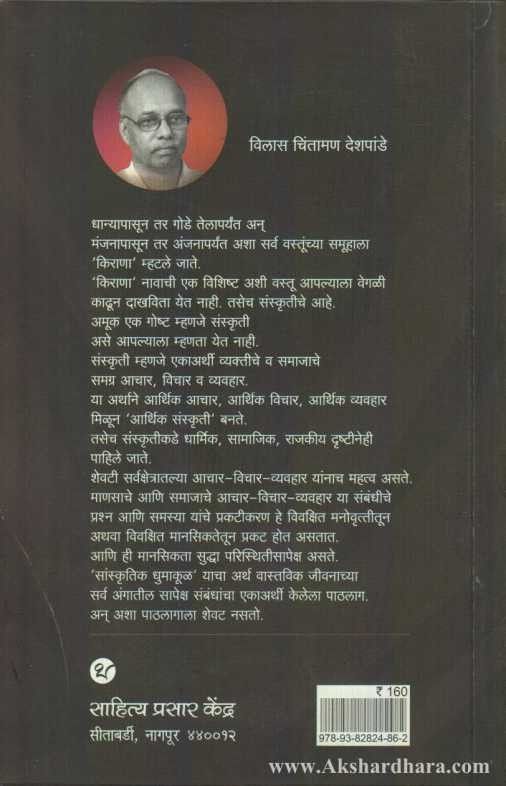 विलास चिंतामण देशपांडे
धान्यापासून तर गोडे तेलापर्यंत अन्
मंजनापासून तर अंजनापर्यंत अशा सर्व वस्तूंच्या समूहाला
'किराणा' म्हटले जाते.
'किराणा' नावाची एक विशिष्ट अशी वस्तू आपल्याला वेगळी
काढून दाखविता येत नाही. तसेच संस्कृतीचे आहे.
अमूक एक गोष्ट म्हणजे संस्कृती
असे आपल्याला म्हणता येत नाही.
संस्कृती म्हणजे एकाअर्थी व्यक्तीचे व समाजाचे
समग्र आचार, विचार व व्यवहार.
या अर्थाने आर्थिक आचार, आर्थिक विचार, आर्थिक व्यवहार
मिळून 'आर्थिक संस्कृती' बनते.
तसेच संस्कृतीकडे धार्मिक, सामाजिक, राजकीय दृष्टीनेही
पाहिले जाते.
शेवटी सर्वक्षेत्रातल्या आचार-विचार-व्यवहार यांनाच महत्व असते.
माणसाचे आणि समाजाचे आचार-विचार-व्यवहार या संबंधीचे
प्रश्न आणि समस्या यांचे प्रकटीकरण हे विवक्षित मनोवृत्तीतून
अथवा विवक्षित मानसिकतेतून प्रकट होत असतात.
आणि ही मानसिकता सुद्धा परिस्थितीसापेक्ष असते.
'सांस्कृतिक धुमाकूळ' याचा अर्थ वास्तविक जीवनाच्या
सर्व अंगातील सापेक्ष संबंधांचा एकाअर्थी केलेला पाठलाग.
अन् अशा पाठलागाला शेवट नसतो.
साहित्य प्रसार केंद्र
सीताबर्डी, नागपूर ४४००१२
₹ 160
978-93-82824-86-2
www.Akshardhara.com